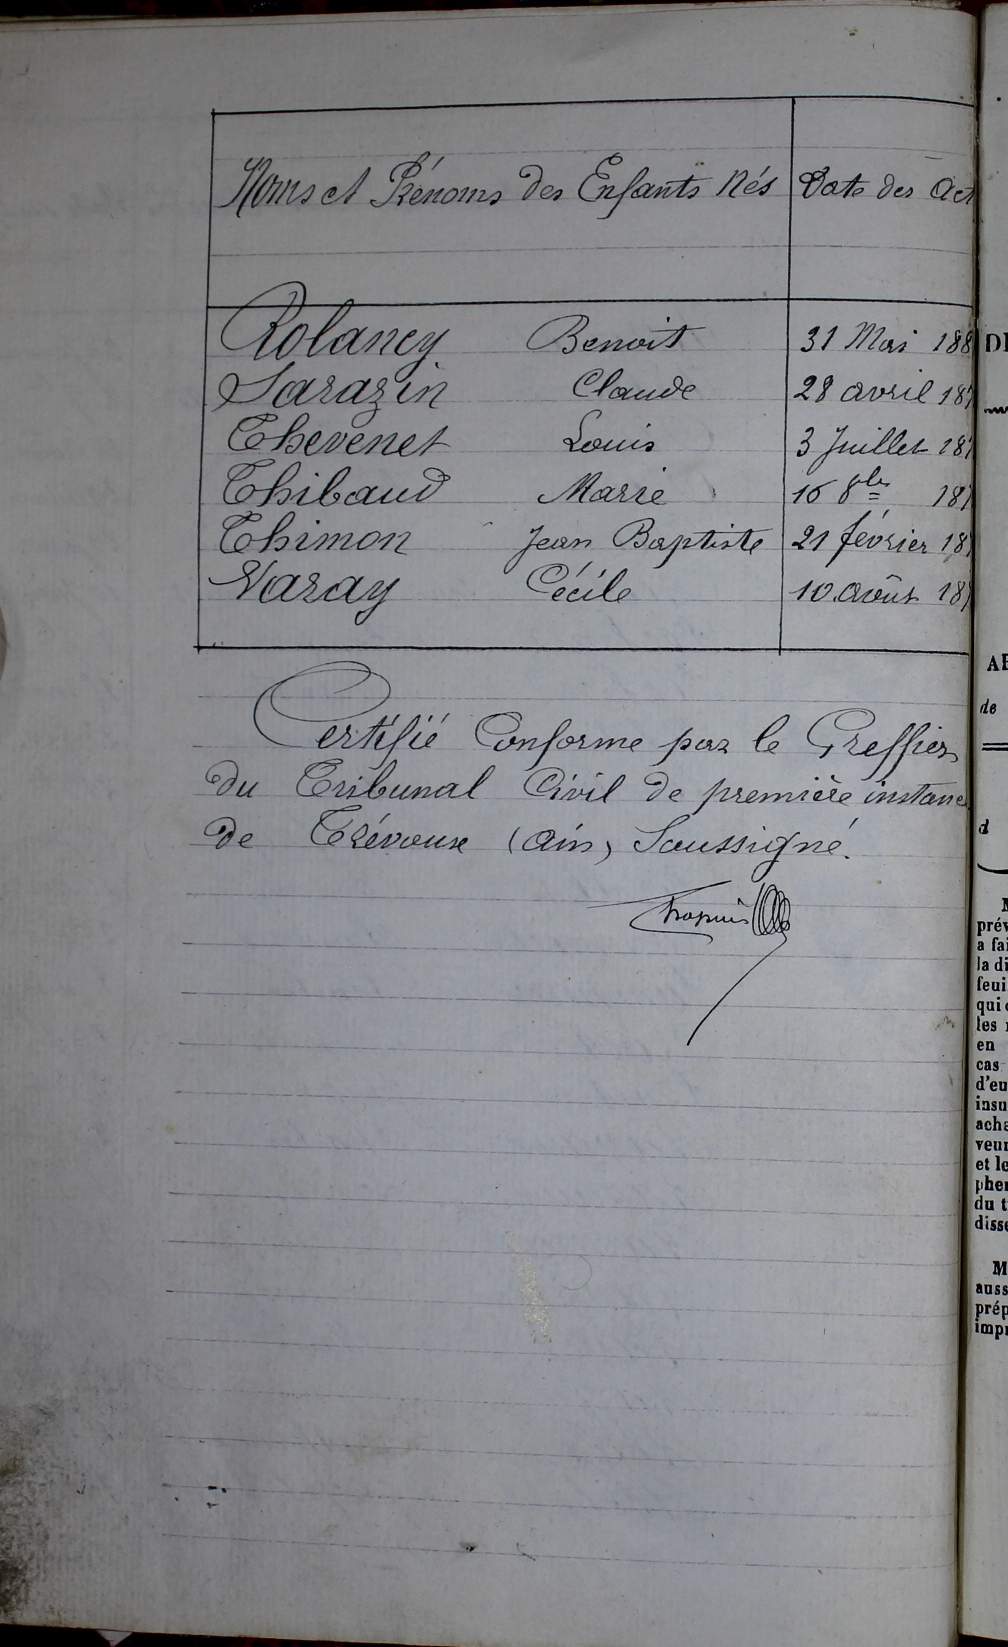 Noms et Prénoms des Enfants Nés Date des Act
Rolancy Benoit 31 Mai 188
Sarazin Claude 28 avril 187
Thevenet Louis 3 Juillet 187
Thibaud Marie 16 8bre 187
Thimon Jean Baptiste 21 février 187
Varay Cécile 10 août 187
Certifié Conforme par le Greffier
du Tribunal Civil de première instance
de Trévoux (Ain) Soussigné.
DE
AR
de
d
prév
a fai
la di
feui
qui
les
en
cas
d'eu
insu
ache
veur
et le
pher
du t
disse
M
auss
prép
impr